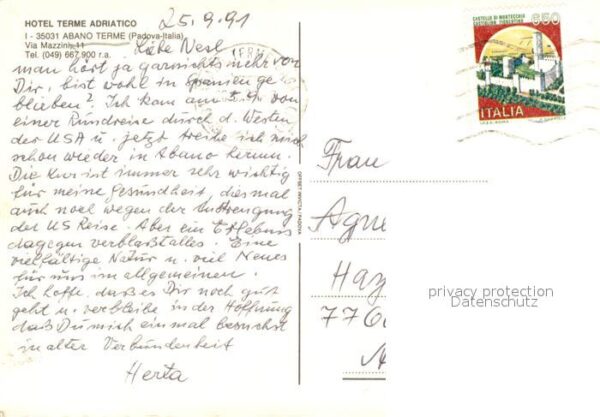 HOTEL TERME ADRIATICO
I - 35031 ABANO TERME (Padova-Italia)
Via Mazzini, 11
Tel. (049) 667 900 r.a.
25.9.91
Liebe Wesl
man hört ja garnichts mehr von
Dir, bist wohl in Spanien ge
blieben? Ich kam am 5.9. von
einer Rundreise durch d. Westen
der USA u. jetzt treibe ich mich
schon wieder in Abano herum.
Die Kur ist immer sehr wichtig
für meine Gesundheit, diesmal
auch noch wegen der Anstrengung
der US Reise. Aber ein Erlebnis
dagegen verblaßt alles. Eine
vielfältige Natur u. viel Neues
für uns im allgemeinen.
Ich hoffe, daß es Dir noch gut
geht u. verbleibe in der Hoffnung
daß Du mich einmal besuchst
in alter Verbundenheit
Herta
OFFSET INVICTA-PADOVA
CASTELLO DI MONTECCHIO
CASTIGLION FIORENTINO
650
ITALIA
Frau
Agne
Haz
776
privacy protection
Datenschutz